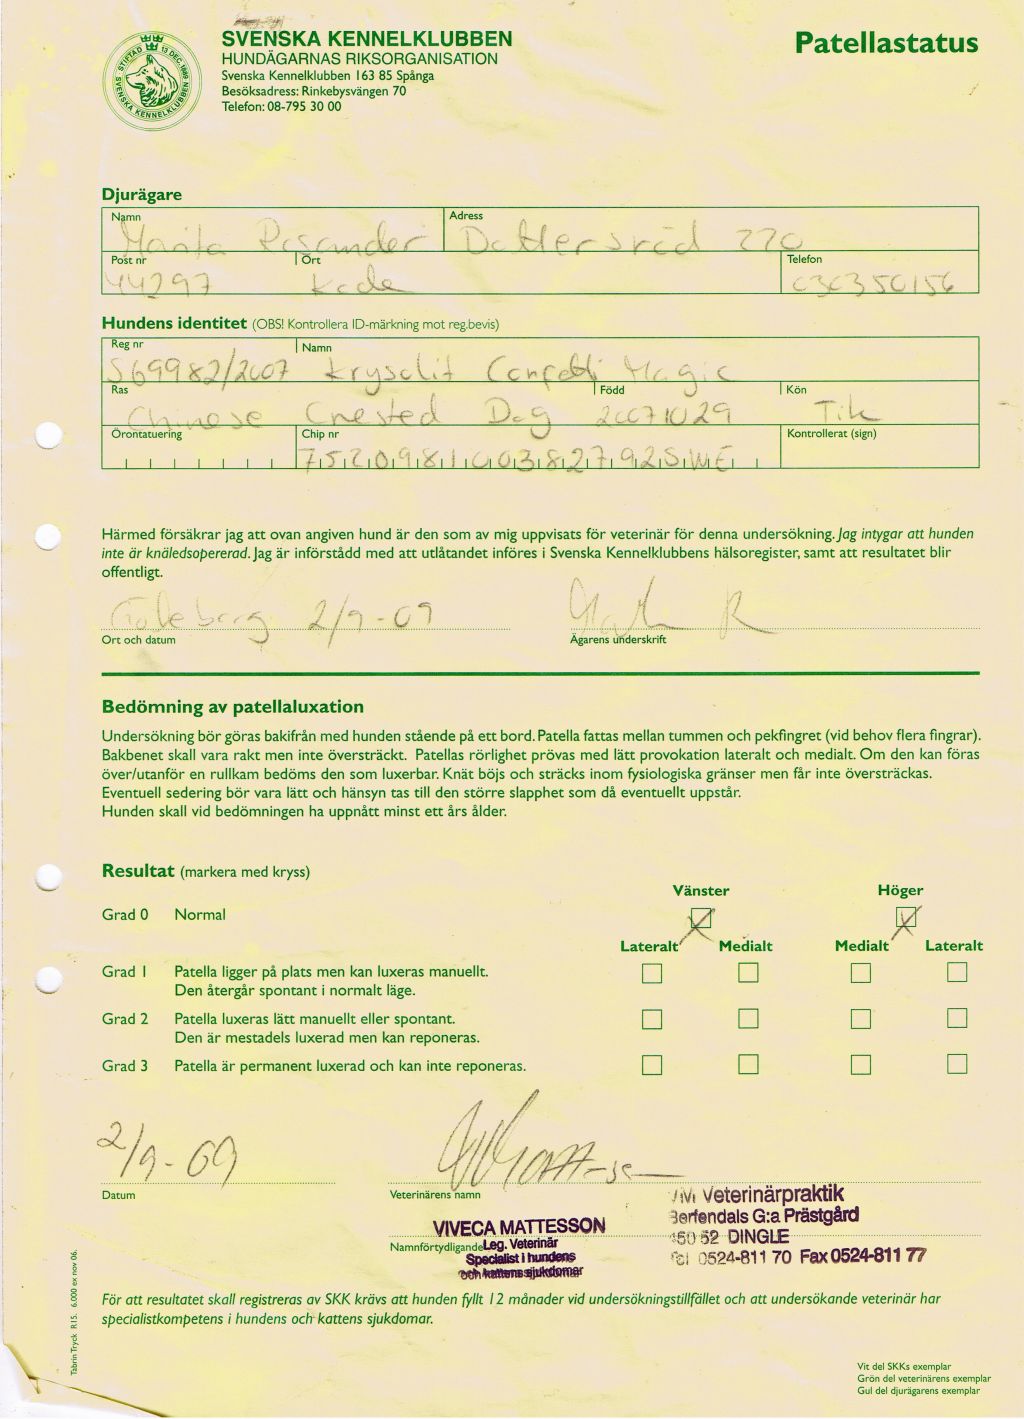 SVENSKA KENNELKLUBBEN
HUNDÄGARNAS RIKSORGANISATION
Svenska Kennelklubben 163 85 Spånga
Besöksadress: Rinkebysvängen 70
Telefon: 08-795 30 00
Patellastatus
STIFTAD 13 DEC. 1889
SVENSKA KENNELKLUBBEN
Djurägare
Namn Adress
Marita Rosander Dottersröd 220
Post nr Ort Telefon
44297 Kode 030350156
Hundens identitet (OBS! Kontrollera ID-märkning mot reg.bevis)
Reg nr Namn
S69982/2007 Krysolit Confetti Magic
Ras Född Kön
Chinese Crested Dog 20071029 Tik
Örontatuering Chip nr Kontrollerat (sign)
752098100382792SWE
Härmed försäkrar jag att ovan angiven hund är den som av mig uppvisats för veterinär för denna undersökning. Jag intygar att hunden
inte är knäledsopererad. Jag är införstådd med att utlåtandet införes i Svenska Kennelklubbens hälsoregister, samt att resultatet blir
offentligt.
Göteborg 2/9-09
Ort och datum Ägarens underskrift
Bedömning av patellaluxation
Undersökning bör göras bakifrån med hunden stående på ett bord. Patella fattas mellan tummen och pekfingret (vid behov flera fingrar).
Bakbenet skall vara rakt men inte översträckt. Patellas rörlighet prövas med lätt provokation lateralt och medialt. Om den kan föras
över/utanför en rullkam bedöms den som luxerbar. Knät böjs och sträcks inom fysiologiska gränser men får inte översträckas.
Eventuell sedering bör vara lätt och hänsyn tas till den större slapphet som då eventuellt uppstår.
Hunden skall vid bedömningen ha uppnått minst ett års ålder.
Resultat (markera med kryss)
Vänster Höger
Grad 0 Normal
Lateralt Medialt Medialt Lateralt
Grad 1 Patella ligger på plats men kan luxeras manuellt.
Den återgår spontant i normalt läge.
Grad 2 Patella luxeras lätt manuellt eller spontant.
Den är mestadels luxerad men kan reponeras.
Grad 3 Patella är permanent luxerad och kan inte reponeras.
2/9-09
Datum Veterinärens namn
Veterinärpraktik
VIVECA MATTESSON
Berfendals G:a Prästgård
Namnförtydligande Leg. Veterinär
450 52 DINGLE
Specialist i hundens
Tel 0524-811 70 Fax 0524-811 77
och kattens sjukdomar
För att resultatet skall registreras av SKK krävs att hunden fyllt 12 månader vid undersökningstillfället och att undersökande veterinär har
specialistkompetens i hundens och kattens sjukdomar.
Tabrin Tryck R15. 6.000 ex nov 06.
Vit del SKKs exemplar
Grön del veterinärens exemplar
Gul del djurägarens exemplar